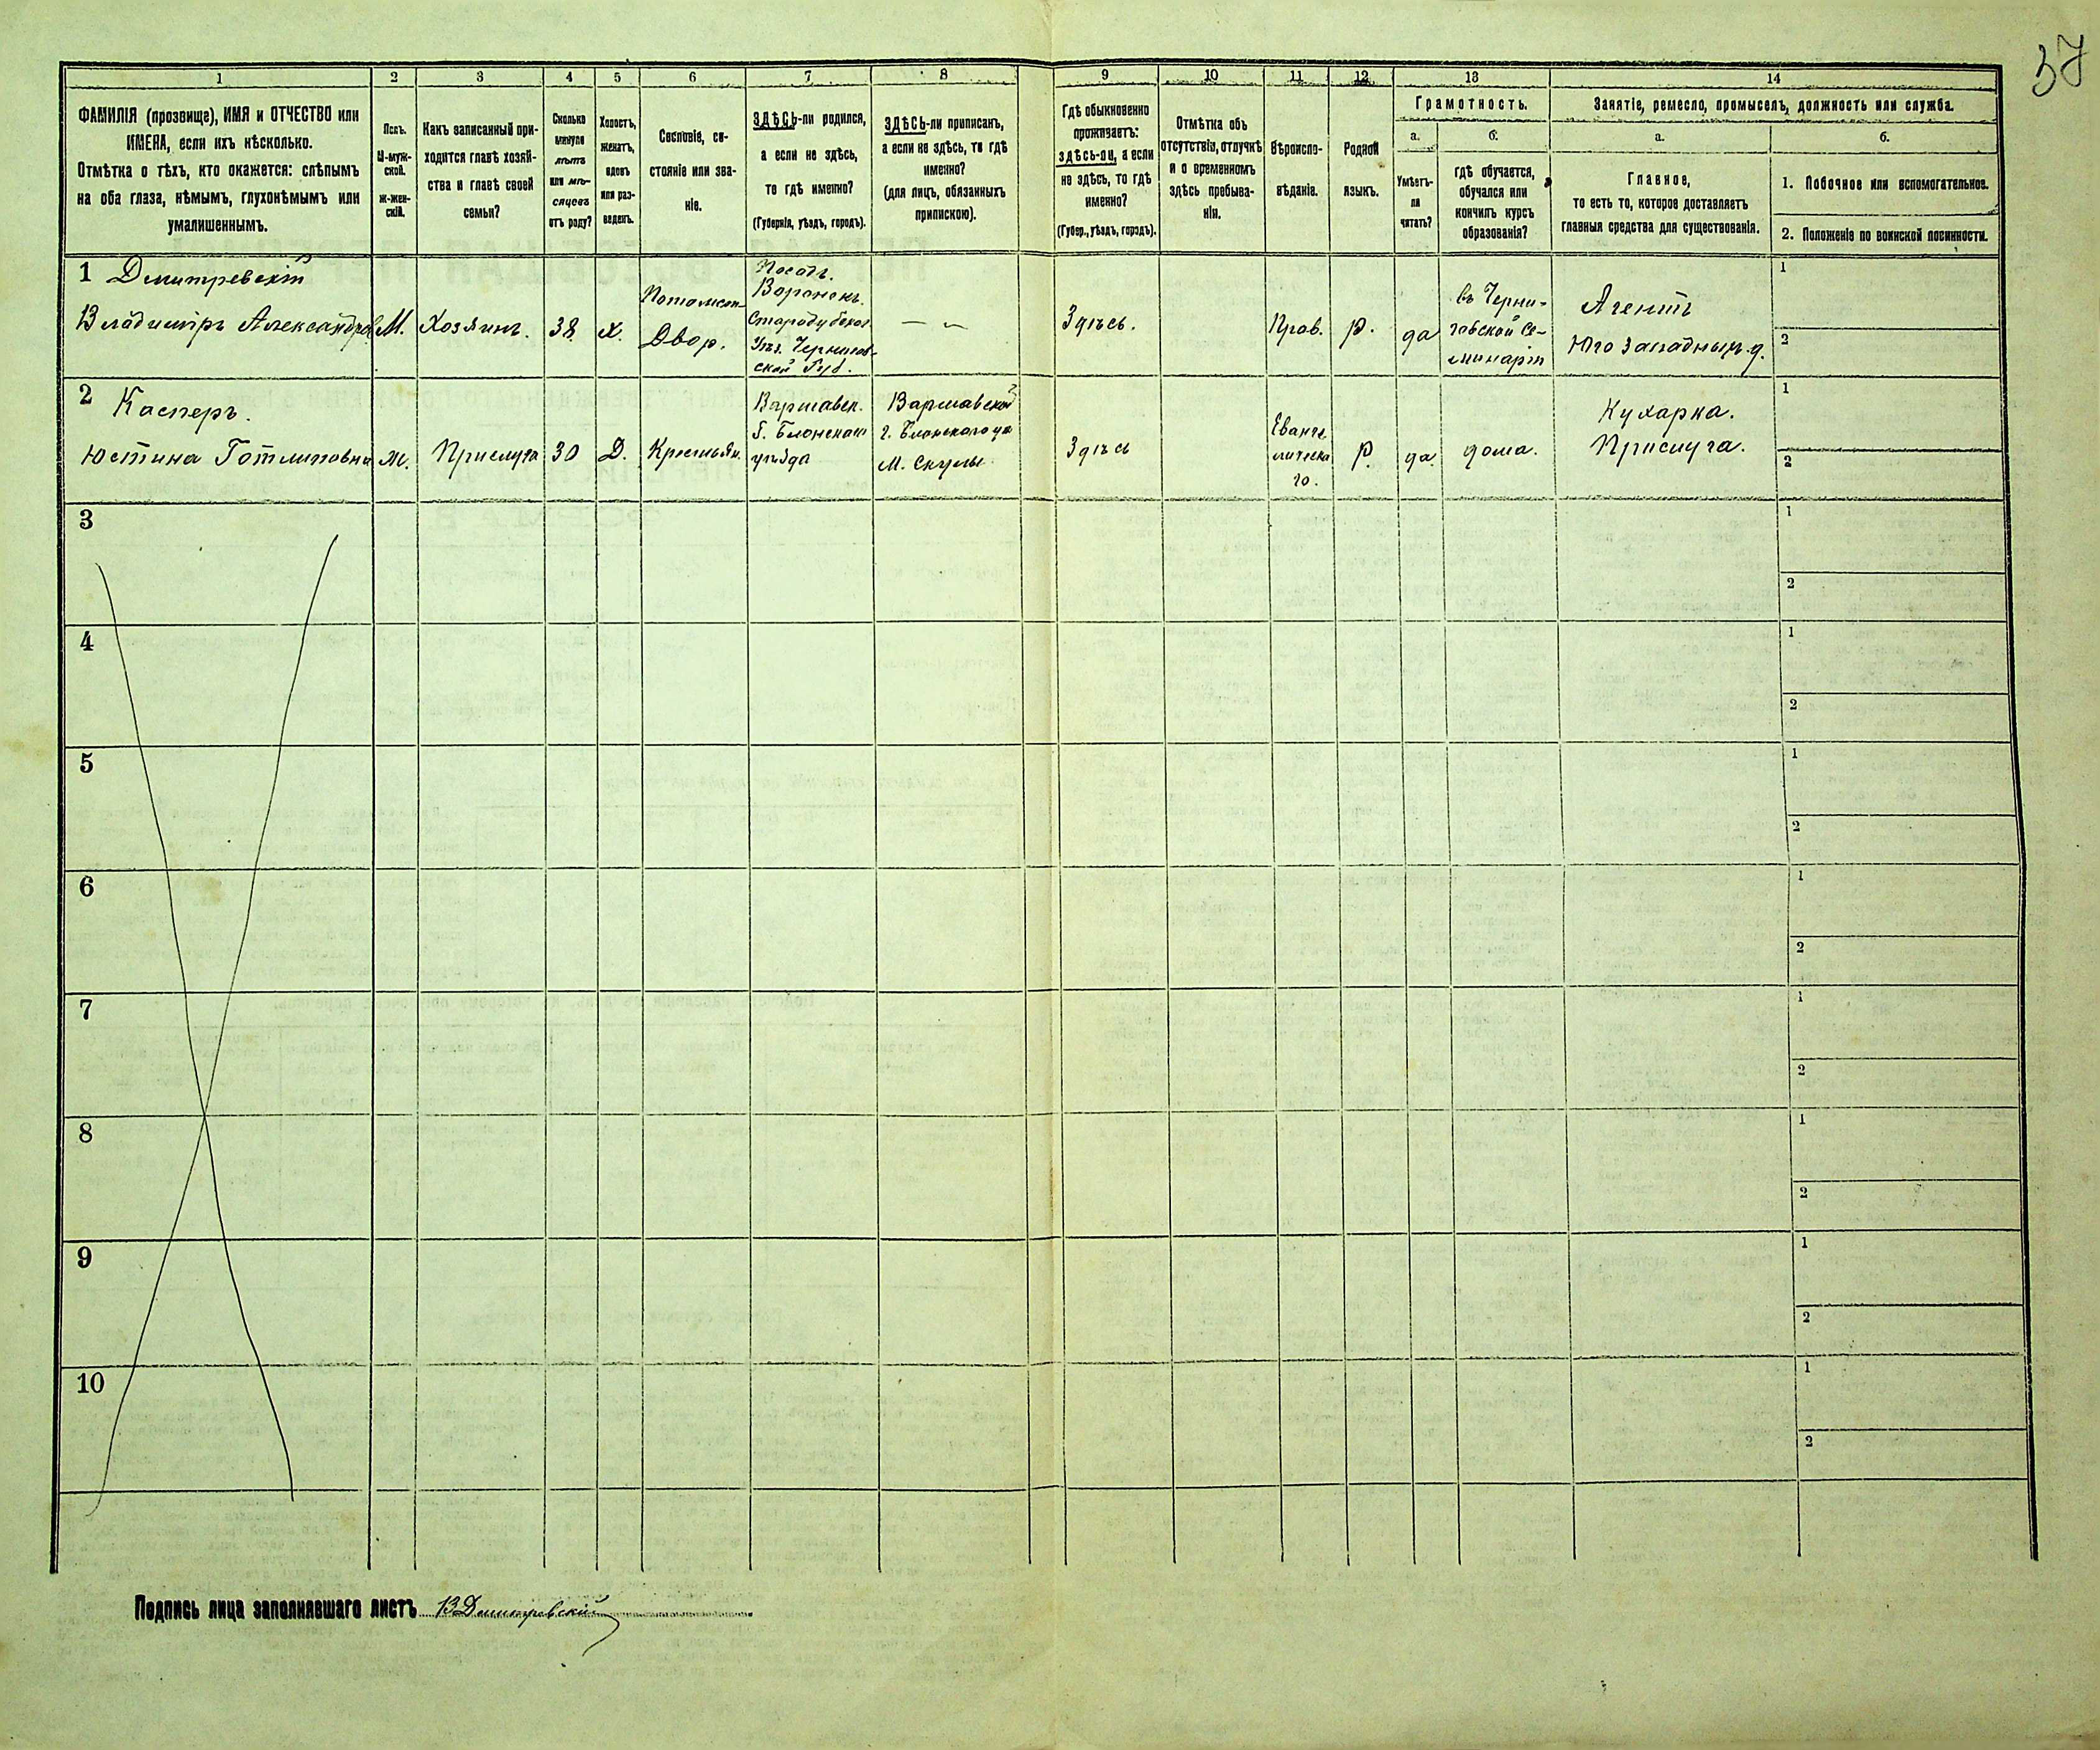 37
1 2 3 4 5 6 7 8 9 10 11 12 13 14
ФАМИЛІЯ (прозвище), ИМЯ и ОТЧЕСТВО или
ИМЕНА, если ихъ нѣсколько.
Отмѣтка о тѣхъ, кто окажется: слѣпымъ
на оба глаза, нѣмымъ, глухонѣмымъ или
умалишеннымъ.
Полъ.
М-муж-
ской.
ж-жен-
скій.
Какъ записанный при-
ходится главѣ хозяй-
ства и главѣ своей
семьи?
Сколько
минуло
лѣтъ
или мѣ-
сяцевъ
отъ роду?
Холостъ,
женатъ,
вдовъ
или раз-
веденъ.
Сословіе, со-
стояніе или зва-
ніе.
ЗДѢСЬ-ли родился,
а если не здѣсь,
то гдѣ именно?
(Губернія, уѣздъ, городъ).
ЗДѢСЬ-ли приписанъ,
а если не здѣсь, то гдѣ
именно?
(для лицъ, обязанныхъ
припискою).
Гдѣ обыкновенно
проживаетъ:
здѣсь-ли, а если
не здѣсь, то гдѣ
именно?
(Губер., уѣздъ, городъ).
Отмѣтка объ
отсутствіи, отлучкѣ
и о временномъ
здѣсь пребыва-
ніи.
Вѣроиспо-
вѣданіе.
Родной
языкъ.
Грамотность.
а. б.
Умѣетъ-
ли
читать?
гдѣ обучается,
обучался или
кончилъ курсъ
образованія?
Занятіе, ремесло, промыселъ, должность или служба.
а. б.
Главное,
то есть то, которое доставляетъ
главныя средства для существованія.
1. Побочное или вспомогательное.
2. Положеніе по воинской повинности.
1 Дмитревскій
Владиміръ Александров
М.
Хозяинъ.
38
Х.
Потомствен-
Двор.
Посадъ.
Воронокъ.
Стародубског.
Уѣз. Чернигов-
ской Губ.
— —
Здѣсь.
Прав.
р.
да
въ Черни-
говской Се-
минаріи
Агентъ
Юго Западныхъ д.
1
2
2 Касперъ.
Юстина Готлиповна
ж.
Прислуга
30
Д.
Крестьян.
Варшавск.
Г. Блонскаго
уѣзда
Варшавской
г. Блонскаго уѣ
М. Скулы
Здѣсь
Еванге
лическа
го.
р.
да.
дома.
Кухарка.
Прислуга.
1
2
3
1
2
4
1
2
5
1
2
6
1
2
7
1
2
8
1
2
9
1
2
10
1
2
Подпись лица заполнявшаго листъ ВДмитревскій